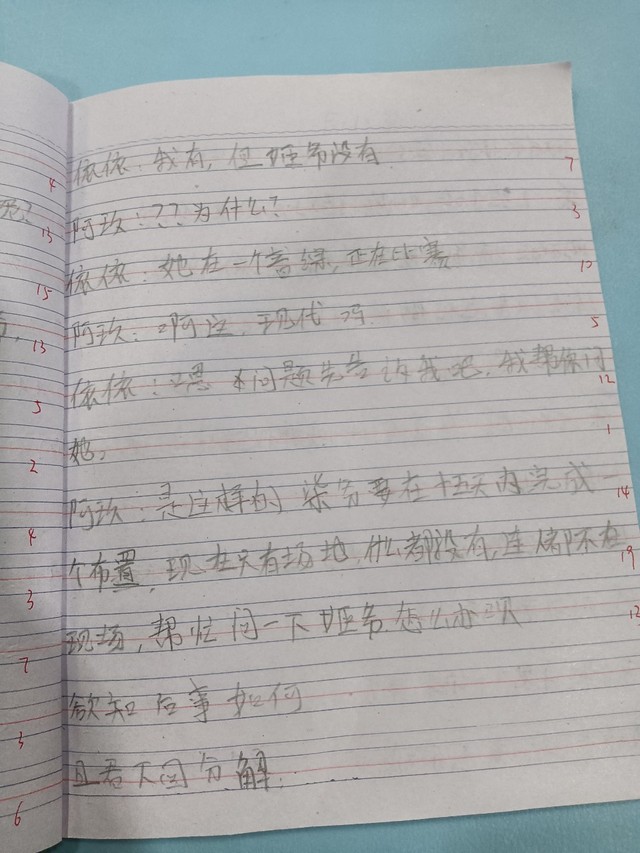 依依:我有,但姬爷没有
7
阿玖:??为什么?
3
依依:她在一个音综,正在比赛
10
阿玖:啊这,现代吗
5
依依:嗯 本问题先告诉我吧,我帮你问
12
她。
1
阿玖:是这样的 柒爷要在十五天内完成一
14
个布置,现在只有场地,什么都没有,连 都不在
19
现场,帮忙问一下姬爷怎么办呗
12
欲知后事如何
且看下回分解......
4
13
15
13
5
2
4
3
7
3
6